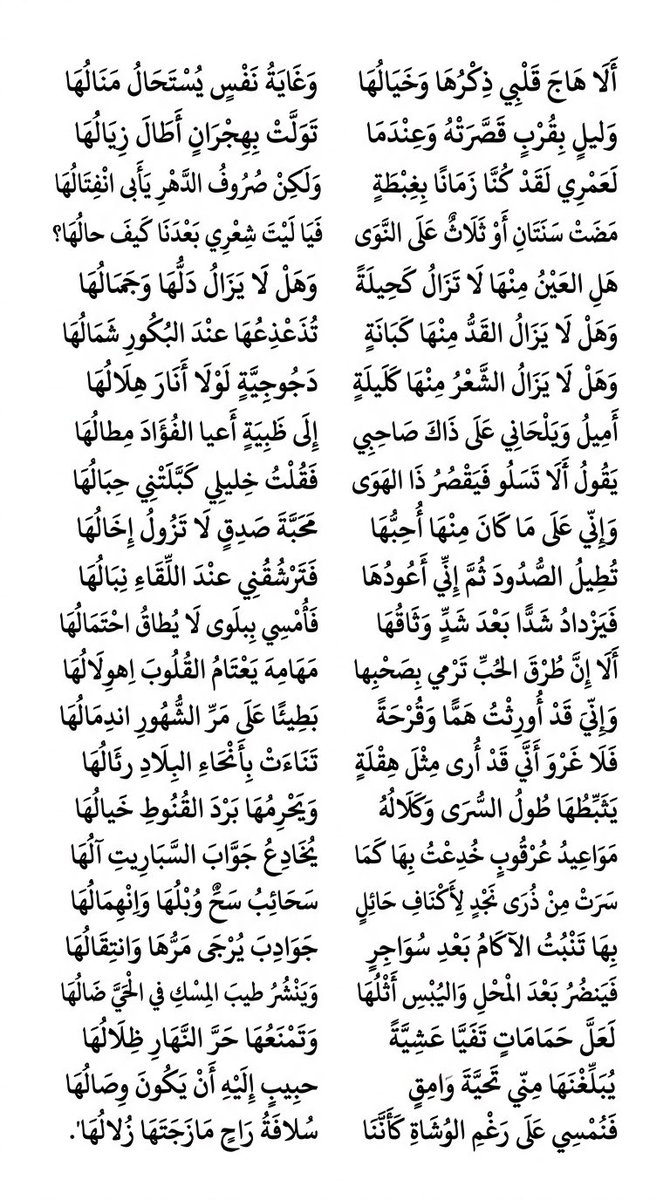 أَلَا هَاجَ قَلْبِي ذِكْرُهَا وَخَيَالُهَا وَغَايَةُ نَفْسٍ يُسْتَحَالُ مَنَالُهَا
وَليلٍ بِقُرْبٍ قَصَّرَتْهُ وَعِنْدَمَا تَوَلَّتْ بِهِجْرَانٍ أَطَالَ زِيَالُهَا
لَعَمْرِي لَقَدْ كُنَّا زَمَانًا بِغِبْطَةٍ وَلَكِنْ صُرُوفُ الدَّهْرِ يَأَبى انْفِتَالُهَا
مَضَتْ سَنَتَانِ أَوْ ثَلَاثٌ عَلَى النَّوَى فَيَا لَيْتَ شِعْرِي بَعْدَنَا كَيفَ حالُهَا؟
هَلِ العَيْنُ مِنْهَا لَا تَزَالُ كَحِيلَةً وَهَلْ لَا يَزَالُ دَلُّهَا وَجَمَالُهَا
وَهَلْ لَا يَزَالُ القَدُّ مِنْهَا كَبَانَةٍ تُذَعْذِعُهَا عنْدَ البُكُورِ شَمَالُهَا
وَهَلْ لَا يَزَالُ الشَّعْرُ مِنْهَا كَلَيلَةٍ دَجُوجِيَّةٍ لَوْلَا أَنَارَ هِلَالُهَا
أَمِيلُ وَيَلْحَانِي عَلَى ذَاكَ صَاحِبِي إِلَى ظَبِيَةٍ أَعيا الفُؤَادَ مِطالُهَا
يَقُولُ أَلَا تَسَلُو فَيَقْصُرُ ذَا الهَوَى فَقُلْتُ خِلِيلِي كَبَّلَتْنِي حِبَالُهَا
وَإِنّي عَلَى مَا كَانَ مِنْهَا أُحِبُّهَا مَحَبَّةَ صَدِقٍ لَا تَزُولُ إِخَالُهَا
تُطِيلُ الصُّدُودَ ثُمَّ إِنِّي أَعُودُهَا فَتَرْشُقُنِي عنْدَ اللِّقَاءِ نِبَالُهَا
فَيَزْدادُ شَدًّا بَعْدَ شَدٍّ وَثَاقُهَا فَأُمْسِي بِبلَوى لَا يُطاقُ احْتَمَالُهَا
أَلَا إِنَّ طُرْقَ الحُبِّ تَرْمي بِصَحْبِها مَهَامِهَ يَعْتَامُ القُلُوبَ اِهوِلَالُهَا
وَإِنّيَ قَدْ أُورِثْتُ هَمًّا وَقُرْحَةً بَطِيئًا عَلَى مَرِّ الشُّهُورِ اندِمَالُهَا
فَلَا غَرْوَ أَنَّي قَدْ أُرى مِثْلَ هِقْلَةٍ تَنَاءَتْ بِأَنْحَاءِ البِلَادِ رئَالُهَا
يَثَبِّطُهَا طُولُ السُّرَى وَكَلَالُهُ وَيَحْرِمُهَا بَرْدَ القُنُوطِ خَيالُهَا
مَوَاعِيدُ عُرْقُوبٍ خُدِعْتُ بِهَا كَمَا يُخَادِعُ جَوَّابَ السَّبَارِيتِ آلُهَا
سَرَتْ مِنْ ذُرَى نَجْدٍ لِأَكْنَافِ حَائِلٍ سَحَائِبُ سَحٌّ وُبْلُهَا وَاِنْهِمَالُهَا
بِهَا تَنْبُتُ الآكَامُ بَعْدِ سُوَاجِرٍ جَوَادِبَ يُرْجَى مَرُّهَا وَانتِقَالُهَا
فَيَنضُرُ بَعْدَ الْمَحْلِ وَاليُبْسِ أَثْلُهَا وَيَنْشُرُ طيبَ المِسْكِ في الْحَيَّ ضَالُهَا
لَعَلَّ حَمَامَاتٍ تَفَيَّا عَشِيَّةً وَتَمْنَعُهَا حَرَّ النَّهَارِ ظِلَالُهَا
يُبَلِّغْنَهَا مِنّي تَحِيَّةَ وَامِقٍ حبِيبٍ إِلَيْهِ أَنْ يَكُونَ وِصَالُهَا
فَنُمْسِي عَلَى رَغْمِ الوُشَاةِ كَأَنَّنَا سُلافَةُ رَاحٍ مَازَجَتَهَا زُلالُهَا'.